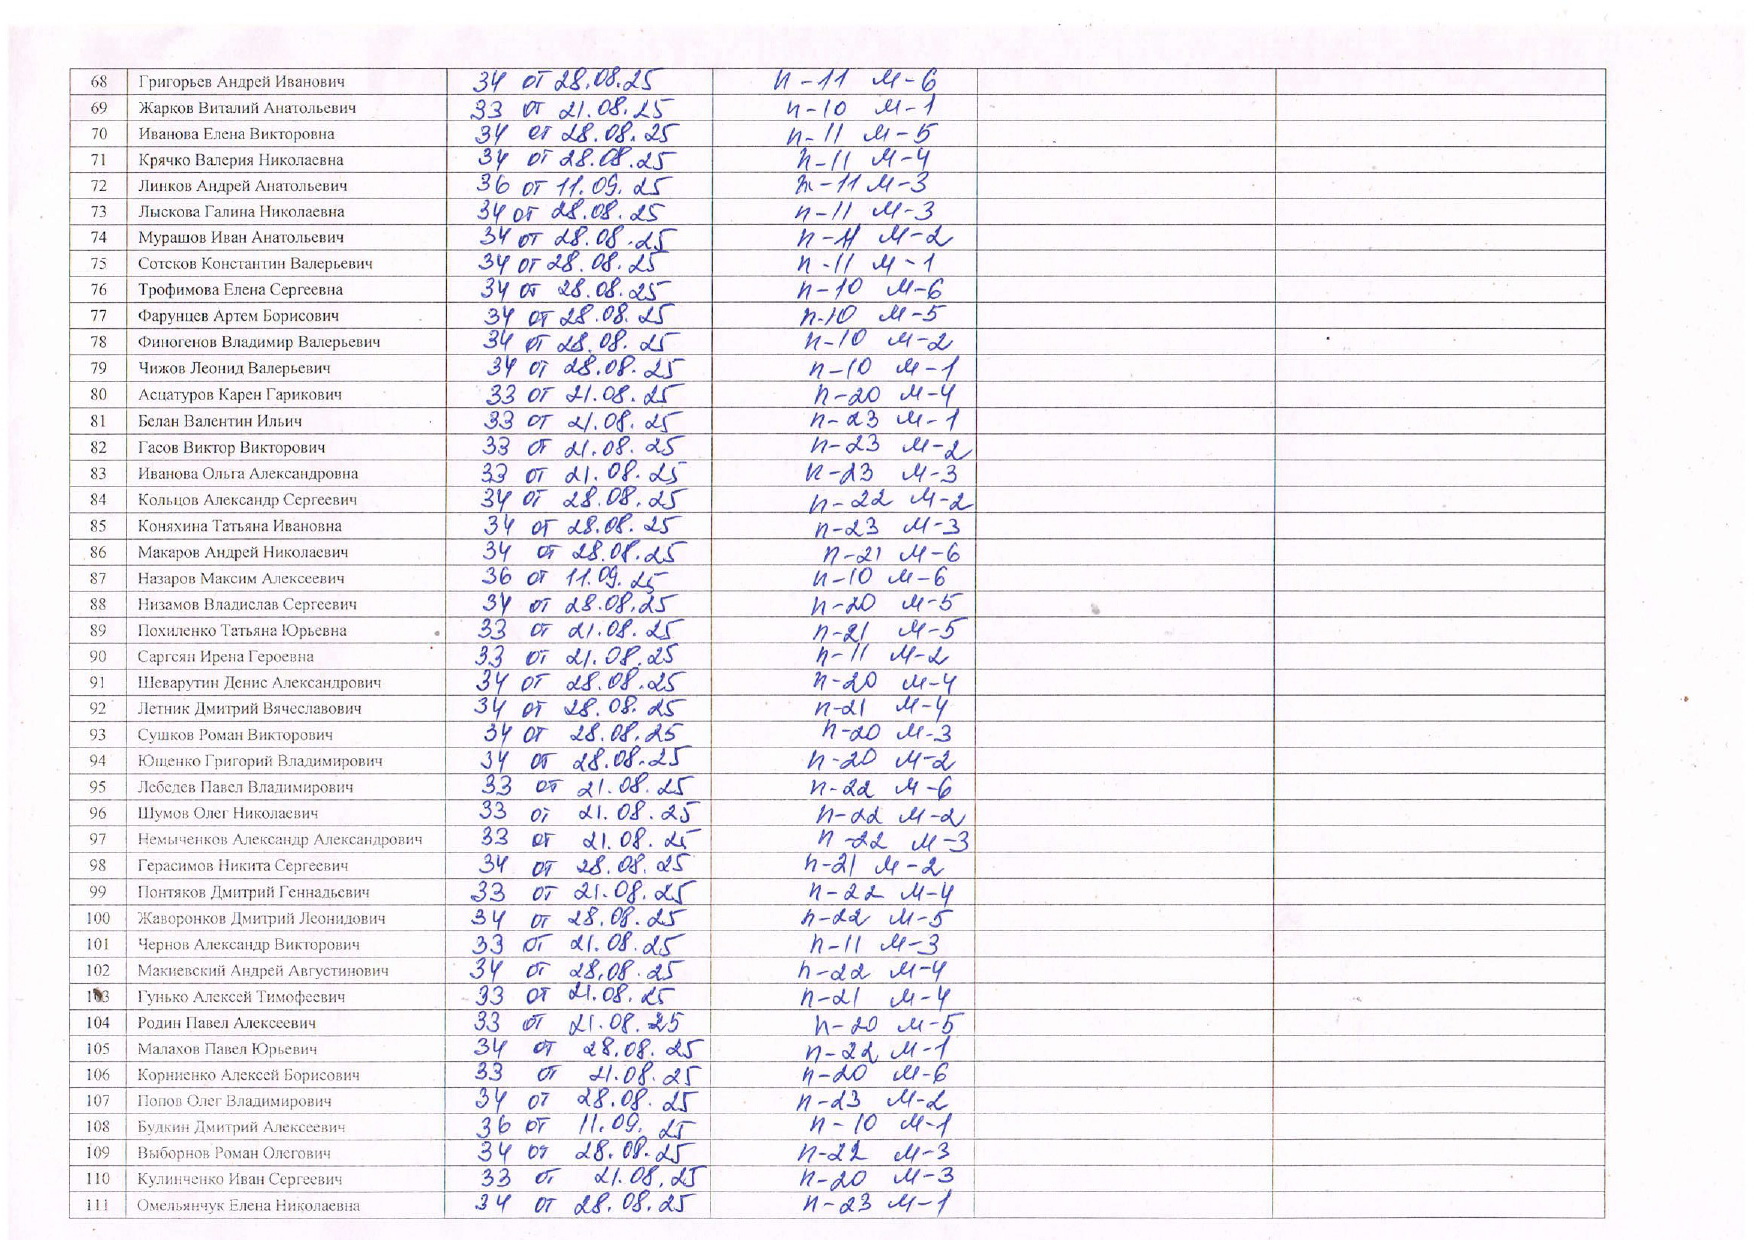 68 Григорьев Андрей Иванович 34 от 28.08.25 п-11 м-6
69 Жарков Виталий Анатольевич 33 от 21.08.25 п-10 м-1
70 Иванова Елена Викторовна 34 от 28.08.25 п-11 м-5
71 Крячко Валерия Николаевна 34 от 28.08.25 п-11 м-4
72 Линков Андрей Анатольевич 36 от 11.09.25 п-11 м-3
73 Лыскова Галина Николаевна 34 от 28.08.25 п-11 м-3
74 Мурашов Иван Анатольевич 34 от 28.08.25 п-11 м-2
75 Сотсков Константин Валерьевич 34 от 28.08.25 п-11 м-1
76 Трофимова Елена Сергеевна 34 от 28.08.25 п-10 м-6
77 Фарунцев Артем Борисович 34 от 28.08.25 п-10 м-5
78 Финогенов Владимир Валерьевич 34 от 28.08.25 п-10 м-2
79 Чижов Леонид Валерьевич 34 от 28.08.25 п-10 м-1
80 Асцатуров Карен Гарикович 33 от 21.08.25 п-20 м-4
81 Белан Валентин Ильич 33 от 21.08.25 п-23 м-1
82 Гасов Виктор Викторович 33 от 21.08.25 п-23 м-2
83 Иванова Ольга Александровна 33 от 21.08.25 п-23 м-3
84 Кольцов Александр Сергеевич 34 от 28.08.25 п-22 м-2
85 Коняхина Татьяна Ивановна 34 от 28.08.25 п-23 м-3
86 Макаров Андрей Николаевич 34 от 28.08.25 п-21 м-6
87 Назаров Максим Алексеевич 36 от 11.09.25 п-10 м-6
88 Низамов Владислав Сергеевич 34 от 28.08.25 п-20 м-5
89 Похиленко Татьяна Юрьевна 33 от 21.08.25 п-21 м-5
90 Саргсян Ирена Героевна 33 от 21.08.25 п-11 м-2
91 Шеварутин Денис Александрович 34 от 28.08.25 п-20 м-4
92 Летник Дмитрий Вячеславович 34 от 28.08.25 п-21 м-4
93 Сушков Роман Викторович 34 от 28.08.25 п-20 м-3
94 Ющенко Григорий Владимирович 34 от 28.08.25 п-20 м-2
95 Лебедев Павел Владимирович 33 от 21.08.25 п-22 м-6
96 Шумов Олег Николаевич 33 от 21.08.25 п-22 м-2
97 Немыченков Александр Александрович 33 от 21.08.25 п-22 м-3
98 Герасимов Никита Сергеевич 34 от 28.08.25 п-21 м-2
99 Понтяков Дмитрий Геннадьевич 33 от 21.08.25 п-22 м-4
100 Жаворонков Дмитрий Леонидович 34 от 28.08.25 п-22 м-5
101 Чернов Александр Викторович 33 от 21.08.25 п-11 м-3
102 Макиевский Андрей Августинович 34 от 28.08.25 п-22 м-4
103 Гунько Алексей Тимофеевич 33 от 21.08.25 п-21 м-4
104 Родин Павел Алексеевич 33 от 21.08.25 п-20 м-5
105 Малахов Павел Юрьевич 34 от 28.08.25 п-22 м-1
106 Корниенко Алексей Борисович 33 от 21.08.25 п-20 м-6
107 Попов Олег Владимирович 34 от 28.08.25 п-23 м-2
108 Будкин Дмитрий Алексеевич 36 от 11.09.25 п-10 м-1
109 Выборнов Роман Олегович 34 от 28.08.25 п-22 м-3
110 Кулинченко Иван Сергеевич 33 от 21.08.25 п-20 м-3
111 Омельянчук Елена Николаевна 34 от 28.08.25 п-23 м-1